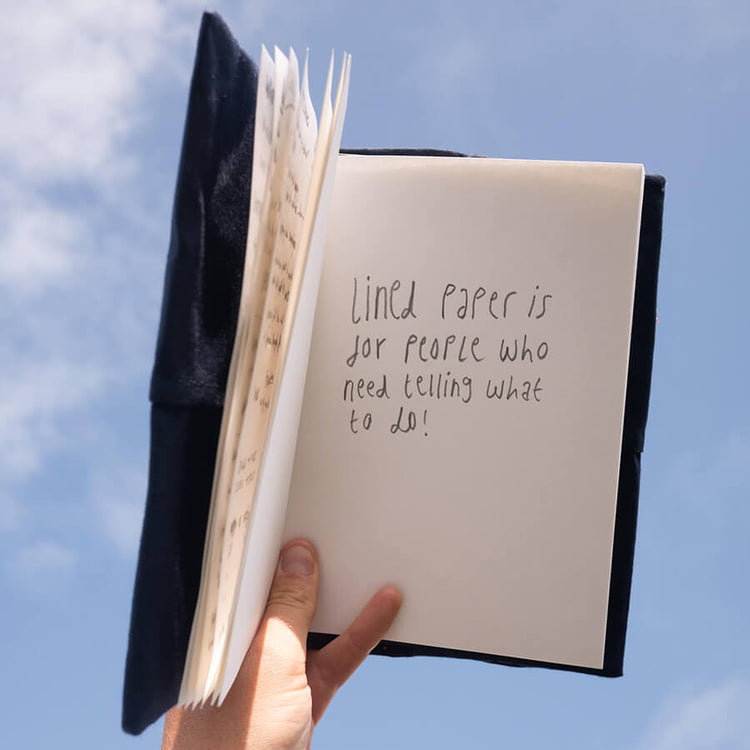 lined paper is
for people who
need telling what
to do!